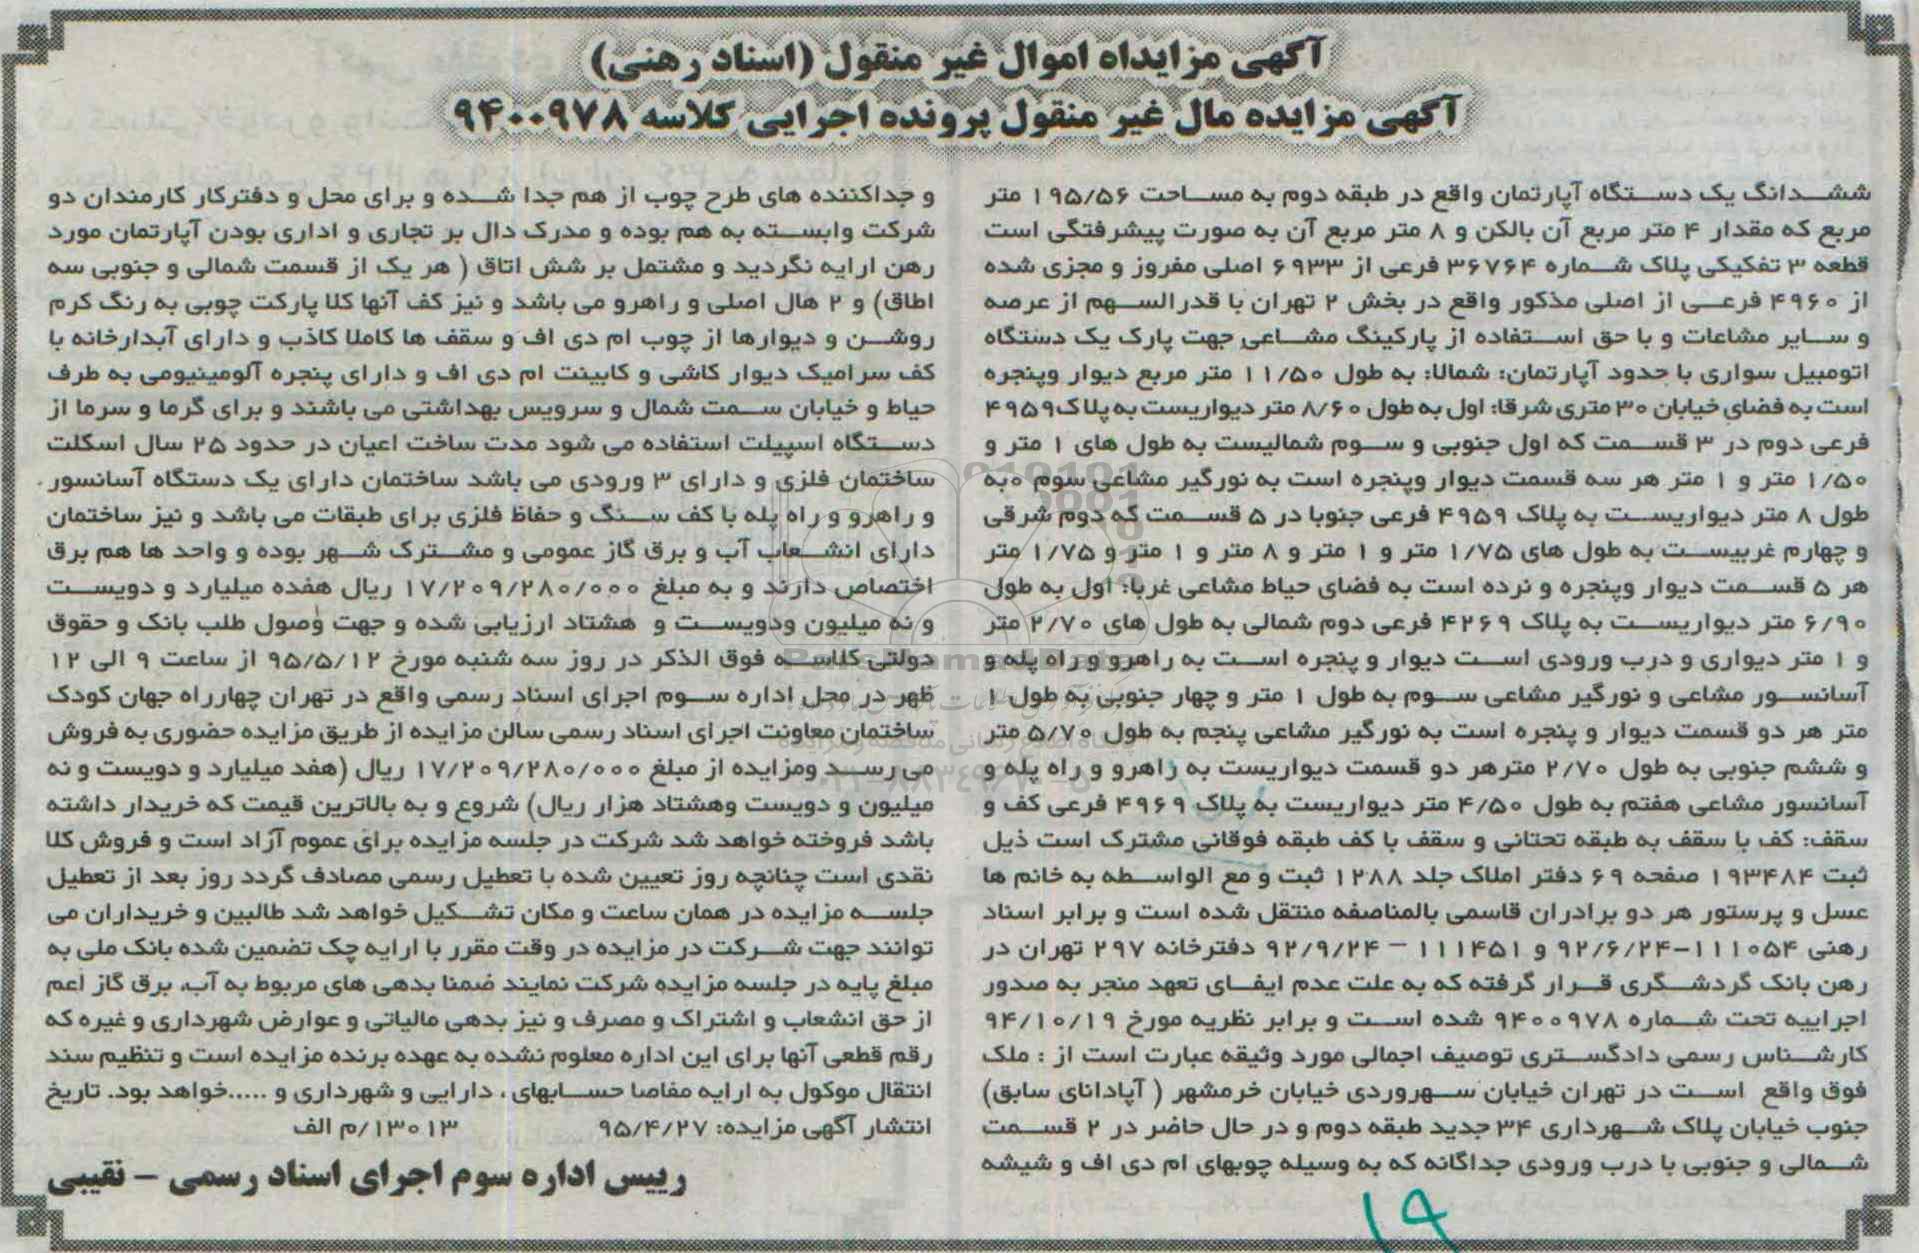 آگهی مزایداه اموال غیر منقول (اسناد رهنی)
آگهی مزایده مال غیر منقول پرونده اجرایی کلاسه ۹۴۰۰۹۷۸
ششدانگ یک دستگاه آپارتمان واقع در طبقه دوم به مساحت ۱۹۵/۵۶ متر
مربع که مقدار ۴ متر مربع آن بالکن و ۸ متر مربع آن به صورت پیشرفتگی است
قطعه ۳ تفکیکی پلاک شماره ۳۶۷۶۴ فرعی از ۶۹۳۳ اصلی مفروز و مجزی شده
از ۴۹۶۰ فرعی از اصلی مذکور واقع در بخش ۲ تهران با قدرالسهم از عرصه
و سایر مشاعات و با حق استفاده از پارکینگ مشاعی جهت پارک یک دستگاه
اتومبیل سواری با حدود آپارتمان: شمالا: به طول ۱۱/۵۰ متر مربع دیوار وپنجره
است به فضای خیابان ۳۰ متری شرقا: اول به طول ۸/۶۰ متر دیواریست به پلاک ۴۹۵۹
فرعی دوم در ۳ قسمت که اول جنوبی و سوم شمالیست به طول های ۱ متر و
۱/۵۰ متر و ۱ متر هر سه قسمت دیوار وپنجره است به نورگیر مشاعی سوم ه‍به
طول ۸ متر دیواریست به پلاک ۴۹۵۹ فرعی جنوبا در ۵ قسمت که دوم شرقی
و چهارم غربیست به طول های ۱/۷۵ متر و ۱ متر و ۸ متر و ۱ متر و ۱/۷۵ متر
هر ۵ قسمت دیوار وپنجره و نرده است به فضای حیاط مشاعی غربا: اول به طول
۶/۹۰ متر دیواریست به پلاک ۴۲۶۹ فرعی دوم شمالی به طول های ۲/۷۰ متر
و ۱ متر دیواری و درب ورودی است دیوار و پنجره است به راهرو و راه پله و
آسانسور مشاعی و نورگیر مشاعی سوم به طول ۱ متر و چهار جنوبی به طول ۱
متر هر دو قسمت دیوار و پنجره است به نورگیر مشاعی پنجم به طول ۵/۷۰ متر
و ششم جنوبی به طول ۲/۷۰ مترهر دو قسمت دیواریست به راهرو و راه پله و
آسانسور مشاعی هفتم به طول ۴/۵۰ متر دیواریست به پلاک ۴۹۶۹ فرعی کف و
سقف: کف با سقف به طبقه تحتانی و سقف با کف طبقه فوقانی مشترک است ذیل
ثبت ۱۹۳۴۸۴ صفحه ۶۹ دفتر املاک جلد ۱۲۸۸ ثبت و مع الواسطه به خانم ها
عسل و پرستور هر دو برادران قاسمی بالمناصفه منتقل شده است و برابر اسناد
رهنی ۱۱۱۰۵۴-۹۲/۶/۲۴ و ۱۱۱۴۵۱ - ۹۲/۹/۲۴ دفترخانه ۲۹۷ تهران در
رهن بانک گردشگری قرار گرفته که به علت عدم ایفای تعهد منجر به صدور
اجراییه تحت شماره ۹۴۰۰۹۷۸ شده است و برابر نظریه مورخ ۹۴/۱۰/۱۹
کارشناس رسمی دادگستری توصیف اجمالی مورد وثیقه عبارت است از : ملک
فوق واقع است در تهران خیابان سهروردی خیابان خرمشهر ( آپادانای سابق)
جنوب خیابان پلاک شهرداری ۳۴ جدید طبقه دوم و در حال حاضر در ۲ قسمت
شمالی و جنوبی با درب ورودی جداگانه که به وسیله چوبهای ام دی اف و شیشه
و جداکننده های طرح چوب از هم جدا شده و برای محل و دفترکار کارمندان دو
شرکت وابسته به هم بوده و مدرک دال بر تجاری و اداری بودن آپارتمان مورد
رهن ارایه نگردید و مشتمل بر شش اتاق ( هر یک از قسمت شمالی و جنوبی سه
اطاق) و ۲ هال اصلی و راهرو می باشد و نیز کف آنها کلا پارکت چوبی به رنگ کرم
روشن و دیوارها از چوب ام دی اف و سقف ها کاملا کاذب و دارای آبدارخانه با
کف سرامیک دیوار کاشی و کابینت ام دی اف و دارای پنجره آلومینیومی به طرف
حیاط و خیابان سمت شمال و سرویس بهداشتی می باشند و برای گرما و سرما از
دستگاه اسپیلت استفاده می شود مدت ساخت اعیان در حدود ۲۵ سال اسکلت
ساختمان فلزی و دارای ۳ ورودی می باشد ساختمان دارای یک دستگاه آسانسور
و راهرو و راه پله با کف سنگ و حفاظ فلزی برای طبقات می باشد و نیز ساختمان
دارای انشعاب آب و برق گاز عمومی و مشترک شهر بوده و واحد ها هم برق
اختصاص دارند و به مبلغ ۱۷/۲۰۹/۲۸۰/۰۰۰ ریال هفده میلیارد و دویست
و نه میلیون ودویست و هشتاد ارزیابی شده و جهت وصول طلب بانک و حقوق
دولتی کلاسه فوق الذکر در روز سه شنبه مورخ ۹۵/۵/۱۲ از ساعت ۹ الی ۱۲
ظهر در محل اداره سوم اجرای اسناد رسمی واقع در تهران چهارراه جهان کودک
ساختمان معاونت اجرای اسناد رسمی سالن مزایده از طریق مزایده حضوری به فروش
می رسد ومزایده از مبلغ ۱۷/۲۰۹/۲۸۰/۰۰۰ ریال (هفد میلیارد و دویست و نه
میلیون و دویست وهشتاد هزار ریال) شروع و به بالاترین قیمت که خریدار داشته
باشد فروخته خواهد شد شرکت در جلسه مزایده برای عموم آزاد است و فروش کلا
نقدی است چنانچه روز تعیین شده با تعطیل رسمی مصادف گردد روز بعد از تعطیل
جلسه مزایده در همان ساعت و مکان تشکیل خواهد شد طالبین و خریداران می
توانند جهت شرکت در مزایده در وقت مقرر با ارایه چک تضمین شده بانک ملی به
مبلغ پایه در جلسه مزایده شرکت نمایند ضمنا بدهی های مربوط به آب، برق گاز اعم
از حق انشعاب و اشتراک و مصرف و نیز بدهی مالیاتی و عوارض شهرداری و غیره که
رقم قطعی آنها برای این اداره معلوم نشده به عهده برنده مزایده است و تنظیم سند
انتقال موکول به ارایه مفاصا حسابهای ، دارایی و شهرداری و .....خواهد بود. تاریخ
انتشار آگهی مزایده: ۹۵/۴/۲۷ ۱۳۰۱۳/م الف
رییس اداره سوم اجرای اسناد رسمی - نقیبی
۱۹